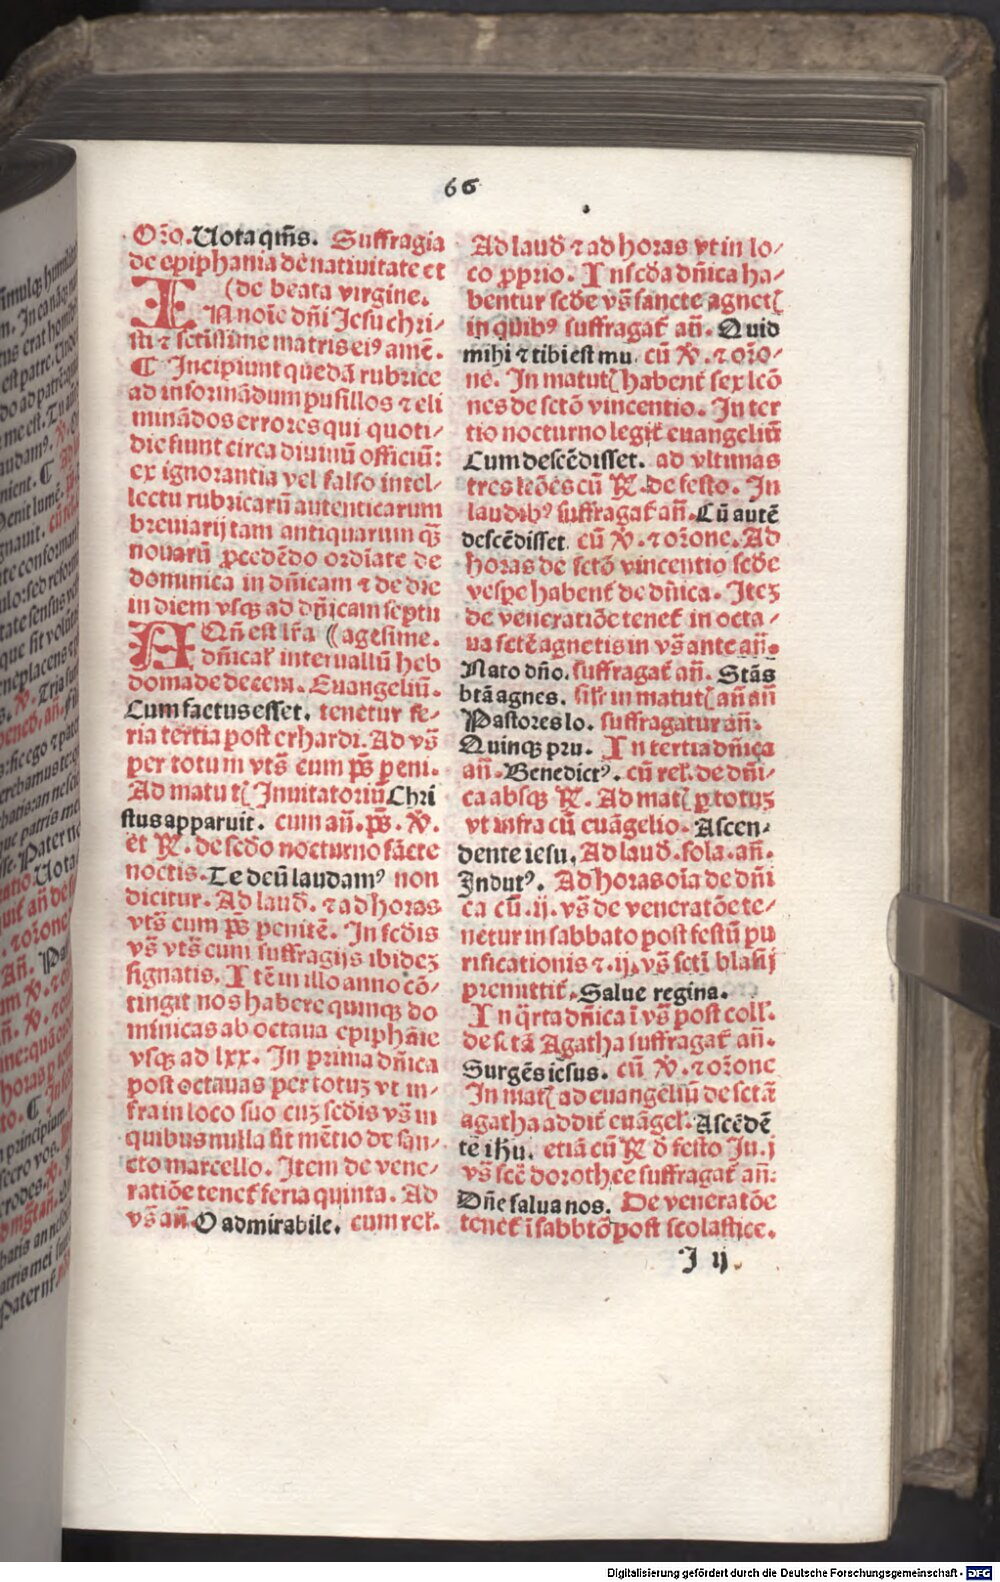 66
Oꝛo. Uota qm̄s. Suffragia
de epiphania de natiuitate et
(de beata virgine.
IN noīe dn̄i Jesu chri-
sti ⁊ sctissime matris eiꝰ amē.
¶ Incipiunt quedā rubrice
ad informādum pusillos ⁊ eli
minādos errores qui quoti-
die fiunt circa diuinū officiū:
ex ignorantia vel falso intel-
lectu rubricarū autenticarum
breuiarij tam antiquarum qͣꝫ
nouarū ꝓcedēdo ordiate de
dominica in dn̄icam ⁊ de die
in diem vsqꝫ ad dn̄icam septu
AQn̄ est lr̄a ((agesime.
dn̄icaꝉ interuallū heb
domade decem. Euangeliū.
Cum factus esset. tenetur fe-
ria tertia post erhardi. Ad vs̄
per totum vts̄ cum ps̄ peni.
Ad matutꝭ Inuitatoriū Chri
stus apparuit. cum an̄. ps̄. ℣.
et ℟. de scd̄o nocturno sācte
noctis. Te deū laudamꝰ non
dicitur. Ad laud̄. ⁊ ad horas
vts̄ cum ps̄ penitē. In scd̄is
vs̄ vts̄ cum suffragijs ibideꝫ
signatis. Itē in illo anno cō-
tingit nos habere quinqꝫ do
minicas ab octaua epiphāie
vsqꝫ ad lxx. In prima dn̄ica
post octauas per totuꝫ vt in-
fra in loco suo cuꝫ scd̄is vs̄ in
quibus nulla fit mētio de san-
cto marcello. Item de vene-
ratiōe tenet̄ feria quinta. Ad
vs̄ an̄ O admirabile. cum reꝉ.
Ad laud̄ ⁊ ad horas vt in lo-
co ꝓprio. In scd̄a dn̄ica ha-
bentur scd̄e vs̄ sancte agnetꝭ
in quibꝰ suffragat̄ an̄. Quid
mihi ⁊ tibi est mu. cū ℣. ⁊ oꝛo-
ne. In matutꝭ habent̄ sex lcō
nes de sctō vincentio. In ter
tio nocturno legit̄ euangeliū
Cum descēdisset. ad vltimas
tres leōes cū ℟. de festo. In
laudibꝰ suffragat̄ an̄. Cū autē
descēdisset. cū ℣. ⁊ oꝛone. Ad
horas de sctō vincentio scd̄e
vespe habent̄ de dn̄ica. Iteꝫ
de veneratiōe tenet̄ in octa-
ua sctē agnetis in vs̄ ante an̄.
Nato dn̄o. suffragat̄ an̄. Stās
btā agnes. siꝉr in matutꝭ an̄ an̄
Pastores lo. suffragatur an̄.
Quinqꝫ pru. In tertia dn̄ica
an̄. Benedictꝰ. cū reꝉ. de dn̄i-
ca absqꝫ ℟. Ad matꝭ ꝑ totuꝫ
vt infra cū euāgelio. Ascen-
dente iesu. Ad laud̄. sola. an̄.
Indutꝰ. Ad horas oīa de dn̄i
ca cū .ij. vs̄ de veneratōe te-
netur in sabbato post festū pu
rificationis ⁊ .ij. vs̄ sctī blasij
premittit̄. Salue regina.
In qͣrta dn̄ica ī vs̄ post coll̄.
de sctā Agatha suffragat̄ an̄.
Surgēs iesus. cū ℣. ⁊ oꝛone
In matꝭ ad euangeliū de sctā
agatha addit̄ euāgeꝉ. Ascēdē
te ih̄u. etiā cū ℟ d̄ festo In .ij
vs̄ scē dorothee suffragat̄ an̄:
Dn̄e salua nos. De veneratōe
tenet̄ ī sabbtō post scolastice.
I ij.
Digitalisierung gefördert durch die Deutsche Forschungsgemeinschaft - DFG